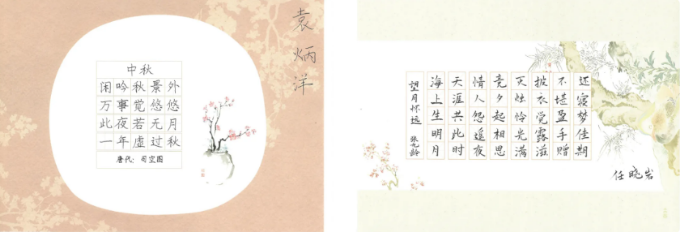 袁炳洋
中秋
闲吟秋景外
万事觉悠悠
此夜若无月
一年虚过秋
唐代：司空图
望月怀远 张九龄
海上生明月
天涯共此时
情人怨遥夜
竟夕起相思
灭烛怜光满
披衣觉露滋
不堪盈手赠
还寝梦佳期
任晓